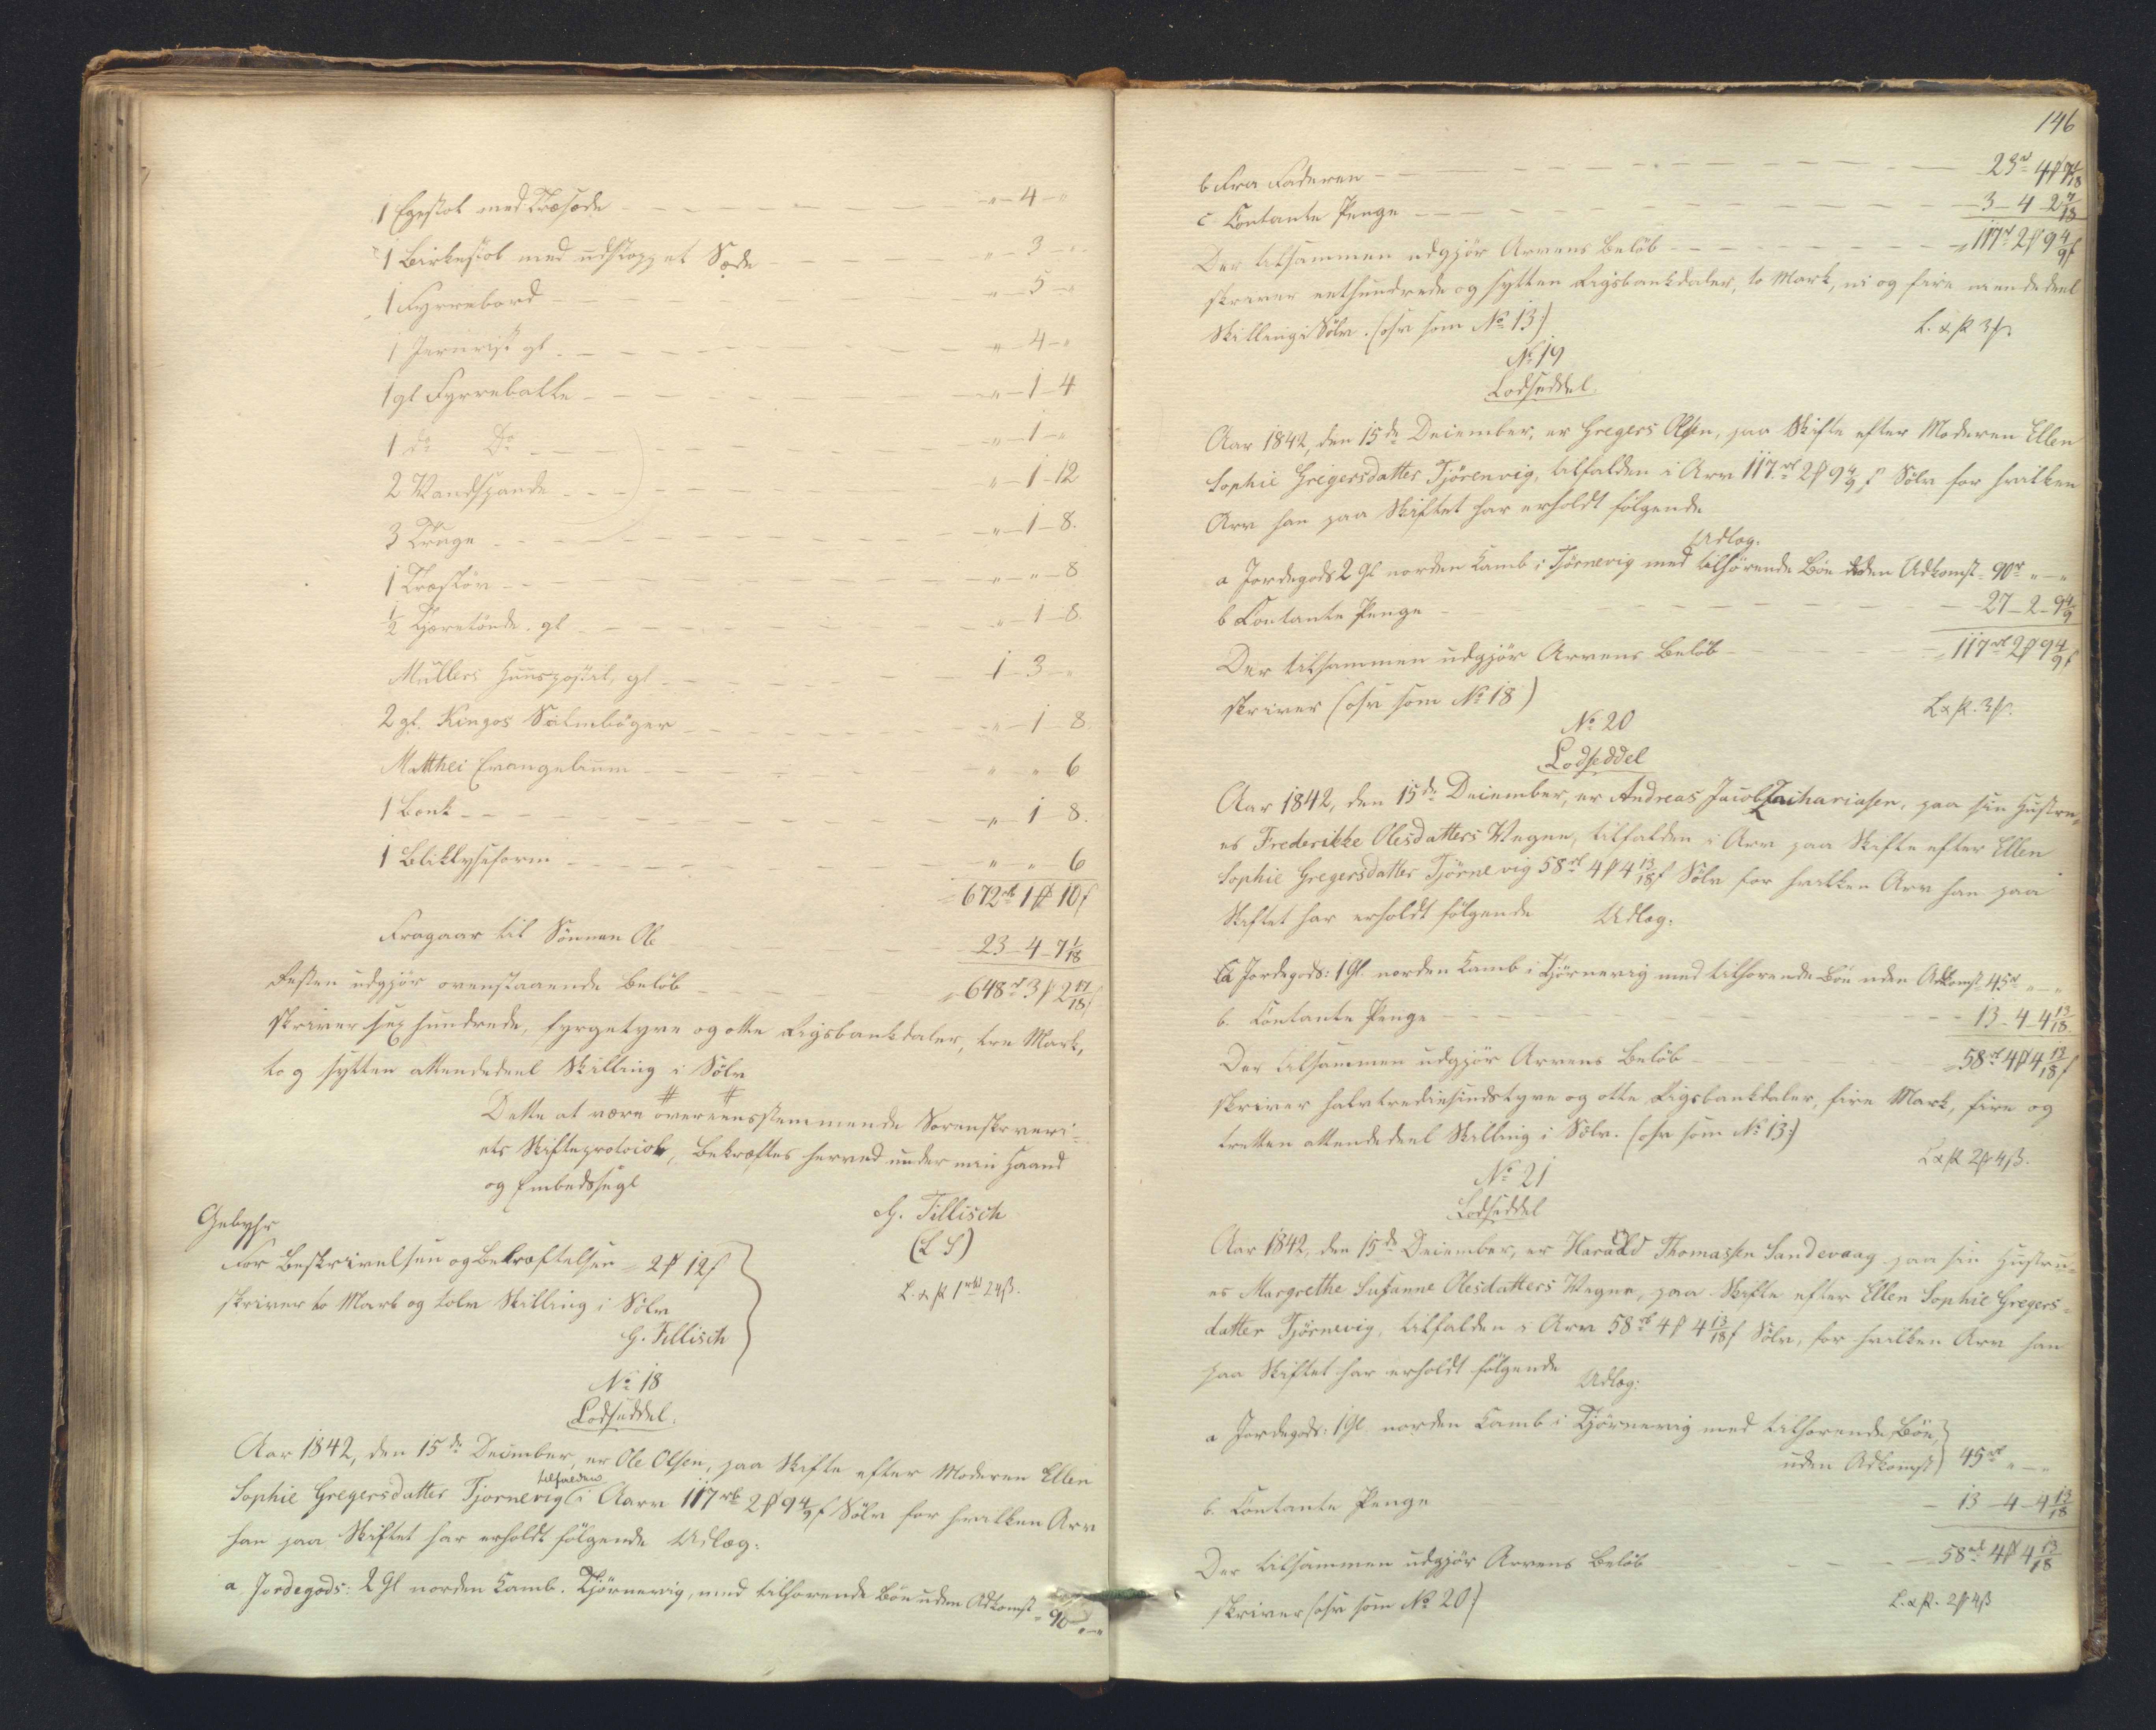 1 Egestol med Træsæde — „ — 4 — „
1 Birkestol med udstoppet Sæde — „ — 3 — „
1 Fyrrebord — „ — 5 — „
1 Jernrist gl. — „ — 4 — „
1 gl Fyrreballe — „ — 1 — 4
1 do Do — „ — 1 — „
2 Vandspande — „ — 1 — 12
3 Truge — „ — 1 — 8.
1 — „ — „ — 8
½ Tjæretönde. gl — „ — 1 — 8.
Müllers Huuspostil, gl — 1 — 3 — „
2 gl. Kingos Salmebøger — „ — 1 — 8.
Matthei Evangelium — „ — „ 6
1 Bænk — „ — 1 — 8.
1 Bliklyseform — „ — „ 6
672 rb 1 ₰ 10 ſ
Fragaar til Sönnen Ole — 23 — 4 — 7 1/18
Resten udgjör ovenstaaende Belöb — 648 r 3 ₰ 2 17/18 ſ
skriver sex hundrede, fyrgetyve og otte Rigsbankdaler, tre Mark,
to og sytten attendedeel Skilling i Sölv
Dette at være overeensstemmende Sorenskrveri=
ets Skifteprotocol, bekræftes herved under min Haand
og Embedssegl
G. Tillisch
(L S)
Gebyhr
For Beskrivelsen og Bekræftelsen = 2 ₰ 12 ſ
L. & R 1 rbd 24 β.
skriver to Mark og tolv Skilling i Sölv
G. Tillisch
No 18
Lodseddel.
Aar 1842, den 15de December, er Ole Olsen, paa Skifte efter Moderen Ellen
Sophie Gregersdatter Tjornevig tilfalden i Aarv 117 rb 2 ₰ 9 4/9 ſ Sölv for hvilken Arv
han paa Skiftet har erholdt følgende Udlæg:
a. Jordegods: 2 Gl norden Kamb. Tjörnevig, med tilhørende Bön uden Adkomst = 90 „—„
146
b Fra Faderen — 23 r 4 ₰ 7 1/18
c. Contante Penge — 3 — 4 — 2 7/18
Der tilsammen udgjör Arvens Belöb — 117 r 2 ₰ 9 4/9 ſ
skriver eethundrede og sytten Rigsbankdaler, to Mark, ni og fire niendedeel
Skilling i Sölv. (osv som No 13:)
L. & R 3 ₰.
No 19
Lodseddel.
Aar 1842, den 15de December, er Gregers Olsen, paa Skifte efter Moderen Ellen
Sophie Gregersdatter Tjörnevig, tilfalden i Arv 117 rb 2 ₰ 9 4/9 ſ Sölv for hvilken
Arv han paa Skiftet har erholdt følgende
Udlæg:
a Jordegods 2 Gl norden Kamb i Tjörnevig med tilhörende Bön uden Adkomst = 90 r „—„
b Contante Penge — 27 — 2 — 9 4/9
Der tilsammen udgjör Arvens Belöb — 117 rb 2 ₰ 9 4/9 ſ
skriver (osv som No 18)
L & R. 3 ₰.
No 20
Lodseddel
Aar 1842, den 15de December, er Andreas Jacob Zachariasen, paa sin Hustru=
es Frederikke Olesdatters Vegne, tilfalden i Arv paa Skifte efter Ellen
Sophie Gregersdatter Tjörnevig 58 rb 4 ₰ 4 13/18 ſ Sölv for hvilken Arv han paa
Skiftet har erholdt følgende Udlæg:
a Jordegods: 1 Gl. norden Kamb i Tjörnevig med tilhörende Bön uden Adkomst 45 r „—„
b. Contante Penge — 13 — 4 — 4 13/18.
Der tilsammen udgjör Arvens Belöb — 58 rb 4 ₰ 4 13/18 ſ
skriver halvtrediesindstyve og otte Rigsbankdaler, fire Mark, fire og
tretten attendedeel Skilling i Sölv. (osv som No 13:)
L & R 2 ₰ 4 β.
No 21
Lodseddel
Aar 1842, den 15de December, er Harald Thomassen Sandevaag paa sin Hustru=
es Margrethe Susanne Olesdatters Vegne, paa Skifte efter Ellen Sophie Gregers=
datter Tjörnevig, tilfalden i Arv 58 rb 4 ₰ 4 13/18 ſ Sölv, for hvilken Arv han
paa Skiftet har erholdt følgende Udlæg:
a Jordegods: 1 Gl norden Kamb i Tjörnevig med tilhörende Bön,
uden Adkomst) 45 rb „—„
b. Contante Penge — 13 — 4 — 4 13/18
Der tilsammen udgjör Arvens Belöb — 58 rb 4 ₰ 4 13/18
skriver (osv som No 20:)
L. & R. 2 ₰ 4 β